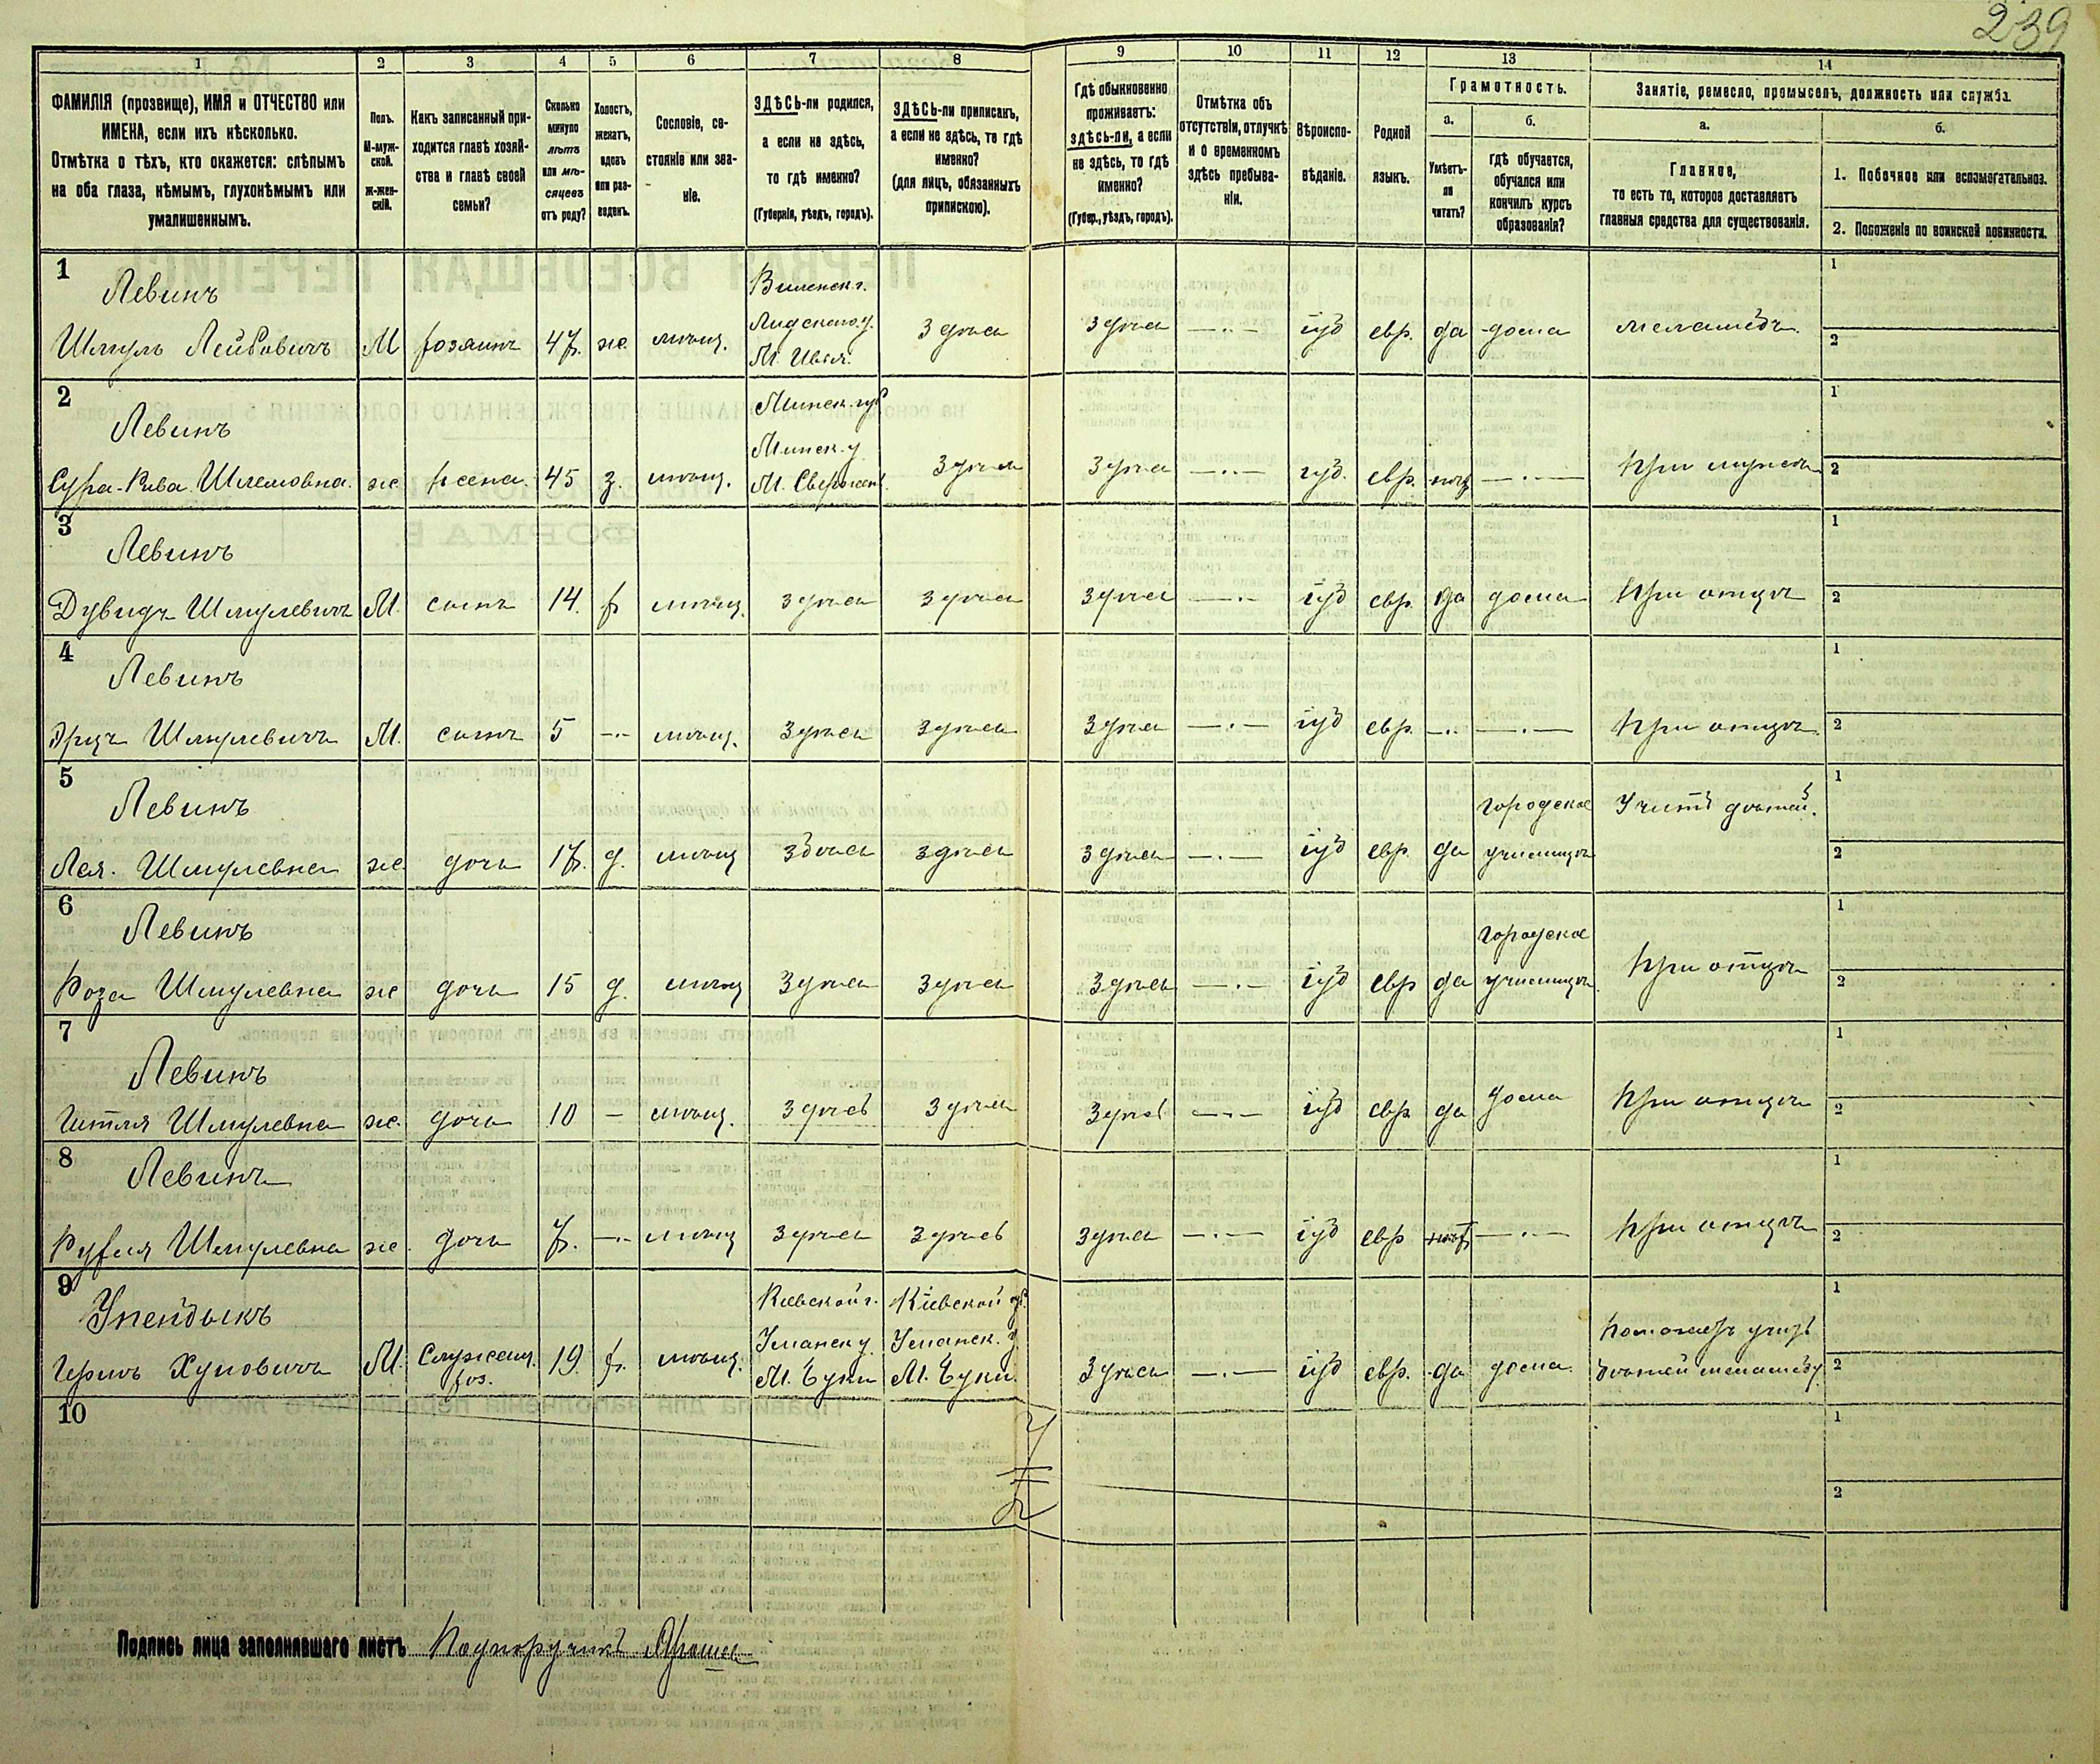 239
1 2 3 4 5 6 7 8 9 10 11 12 13 14
ФАМИЛІЯ (прозвище), ИМЯ и ОТЧЕСТВО или
ИМЕНА, если ихъ нѣсколько.
Отмѣтка о тѣхъ, кто окажется: слѣпымъ
на оба глаза, нѣмымъ, глухонѣмымъ или
умалишеннымъ.
Полъ.
М-муж-
ской.
ж-жен-
скій.
Какъ записанный при-
ходится главѣ хозяй-
ства и главѣ своей
семьи?
Сколько
минуло
лѣтъ
или мѣ-
сяцевъ
отъ роду?
Холостъ,
женатъ,
вдовъ
или раз-
веденъ.
Сословіе, со-
стояніе или зва-
ніе.
ЗДѢСЬ-ли родился,
а если не здѣсь,
то гдѣ именно?
(Губернія, уѣздъ, городъ).
ЗДѢСЬ-ли приписанъ,
а если не здѣсь, то гдѣ
именно?
(для лицъ, обязанныхъ
припискою).
Гдѣ обыкновенно
проживаетъ:
здѣсь-ли, а если
не здѣсь, то гдѣ
именно?
(Губер., уѣздъ, городъ).
Отмѣтка объ
отсутствіи, отлучкѣ
и о временномъ
здѣсь пребыва-
ніи.
Вѣроиспо-
вѣданіе.
Родной
языкъ.
Грамотность.
а.
Умѣетъ-
ли
читать?
б.
гдѣ обучается,
обучался или
кончилъ курсъ
образованія?
Занятіе, ремесло, промыселъ, должность или служба.
а.
Главное,
то есть то, которое доставляетъ
главныя средства для существованія.
б.
1. Побочное или вспомогательное.
2. Положеніе по воинской повинности.
1
Левинъ
Шмуль Лейбовичъ М хозяинъ 47. ж. мѣщ. Виленск. г.
Лидскаго у.
М. Ивья. здѣсь здѣсь —·— іуд евр. да дома меламедъ.
1
2
2
Левинъ
Сура-Рива Шлемовна. ж жена. 45 з. мѣщ. Минск. губ
Минск. у
М. Свержень здѣсь здѣсь —·— іуд. евр. нѣтъ —·— при мужѣ
1
2
3
Левинъ
Дувидъ Шмулевичъ М. сынъ 14. х мѣщ. здѣсь здѣсь здѣсь —·— іуд евр. да дома при отцѣ
1
2
4
Левинъ
Эрцъ Шмулевичъ М. сынъ 5 —·— мѣщ. здѣсь здѣсь здѣсь —·— іуд евр. —·— —·— при отцѣ
1
2
5
Левинъ
Лея. Шмулевна ж дочь 17. д. мѣщ здѣсь здѣсь здѣсь —·— іуд евр. да городское
училище Учитъ дѣтей.
1
2
6
Левинъ
Роза Шмулевна ж дочь 15 д. мѣщ здѣсь здѣсь здѣсь —·— іуд евр да городское
училище при отцѣ
1
2
7
Левинъ
Гитля Шмулевна ж. дочь 10 — мѣщ. здѣсь здѣсь здѣсь —·— іуд евр да дома при отцѣ
1
2
8
Левинъ
Рухля Шмулевна ж дочь 7. —·— мѣщ здѣсь здѣсь здѣсь —·— іуд евр нѣтъ —·— при отцѣ
1
2
9
Герш Хуновичъ М. Служащ.
хоз. 19. х. мѣщ. Кіевской г.
Уманск у
М. Буки Кіевской губ.
Уманск. у
М. Буки. здѣсь —·— іуд евр. да дома. Помогаетъ учить
дѣтей меламеду
1
2
10
1
2
Подпись лица заполнявшаго листъ Подпоручикъ